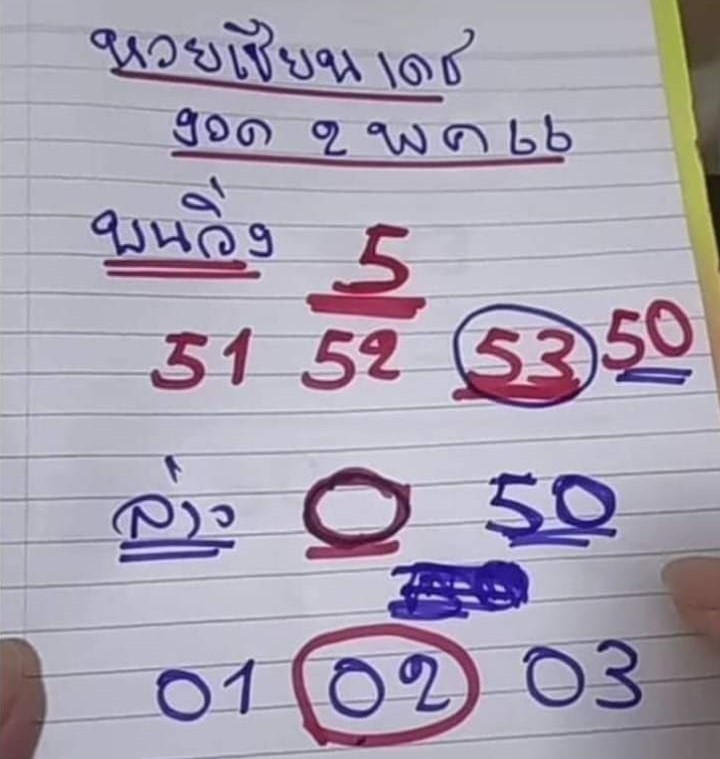 หวยเซียนเดช
งวด 2 พค 66
บนวิ่ง 5
51 52 53 50
ล่าง 0 50
01 02 03